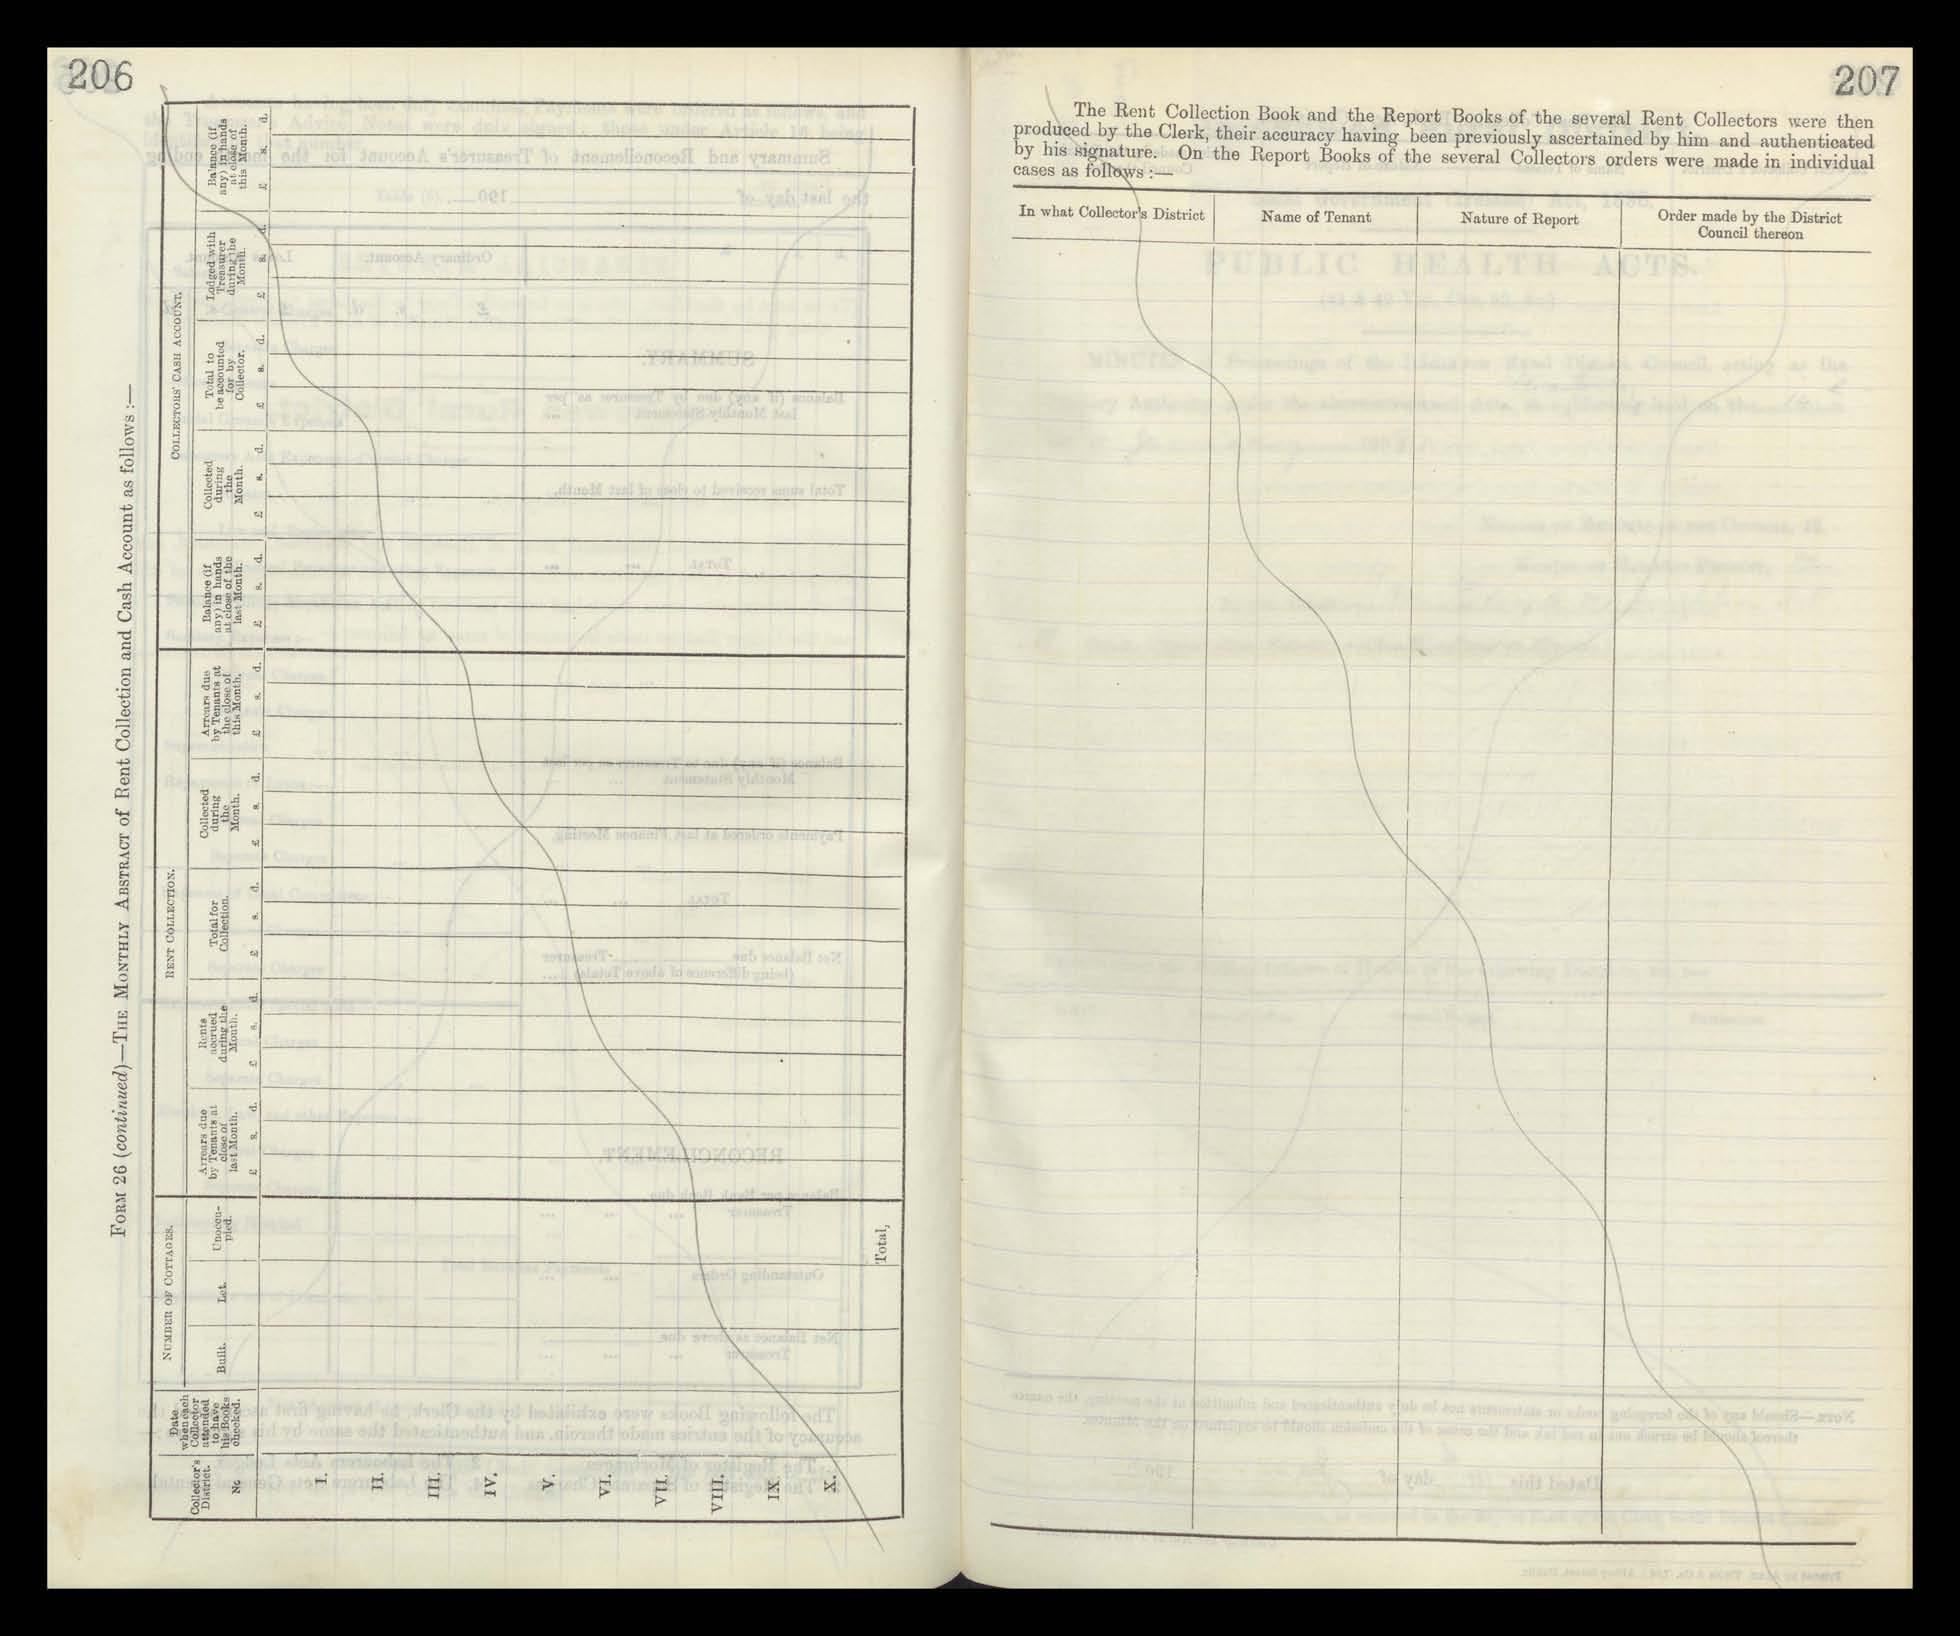 206
FORM 26 (continued)—THE MONTHLY ABSTRACT of Rent Collection and Cash Account as follows :—
Collector's District.
No
Date when each Collector attended to have his Books checked.
NUMBER OF COTTAGES.
Built.
Let.
Unoccu-
pied.
RENT COLLECTION.
Arrears due
by Tenants at
close of
last Month.
£ s. d.
Rents
accrued
during the
Month.
£ s. d.
Total for
Collection.
£ s. d.
Collected
during
the
Month.
£ s. d.
Arrears due
by Tenants at
the close of
this Month.
£ s. d.
COLLECTORS' CASH ACCOUNT.
Balance (if
any) in hands
at close of the
last Month.
£ s. d.
Collected
during
the
Month.
£ s. d.
Total to
be accounted
for by
Collector.
£ s. d.
Lodged with
Treasurer
during the
Month.
£ s. d.
Balance (if
any) in hands
at close of
this Month.
£ s. d.
I.
II.
III.
IV.
V.
VI.
VII.
VIII.
IX.
X.
Total,
207
The Rent Collection Book and the Report Books of the several Rent Collectors were then
produced by the Clerk, their accuracy having been previously ascertained by him and authenticated
by his signature. On the Report Books of the several Collectors orders were made in individual
cases as follows :—
In what Collector's District
Name of Tenant
Nature of Report
Order made by the District
Council thereon